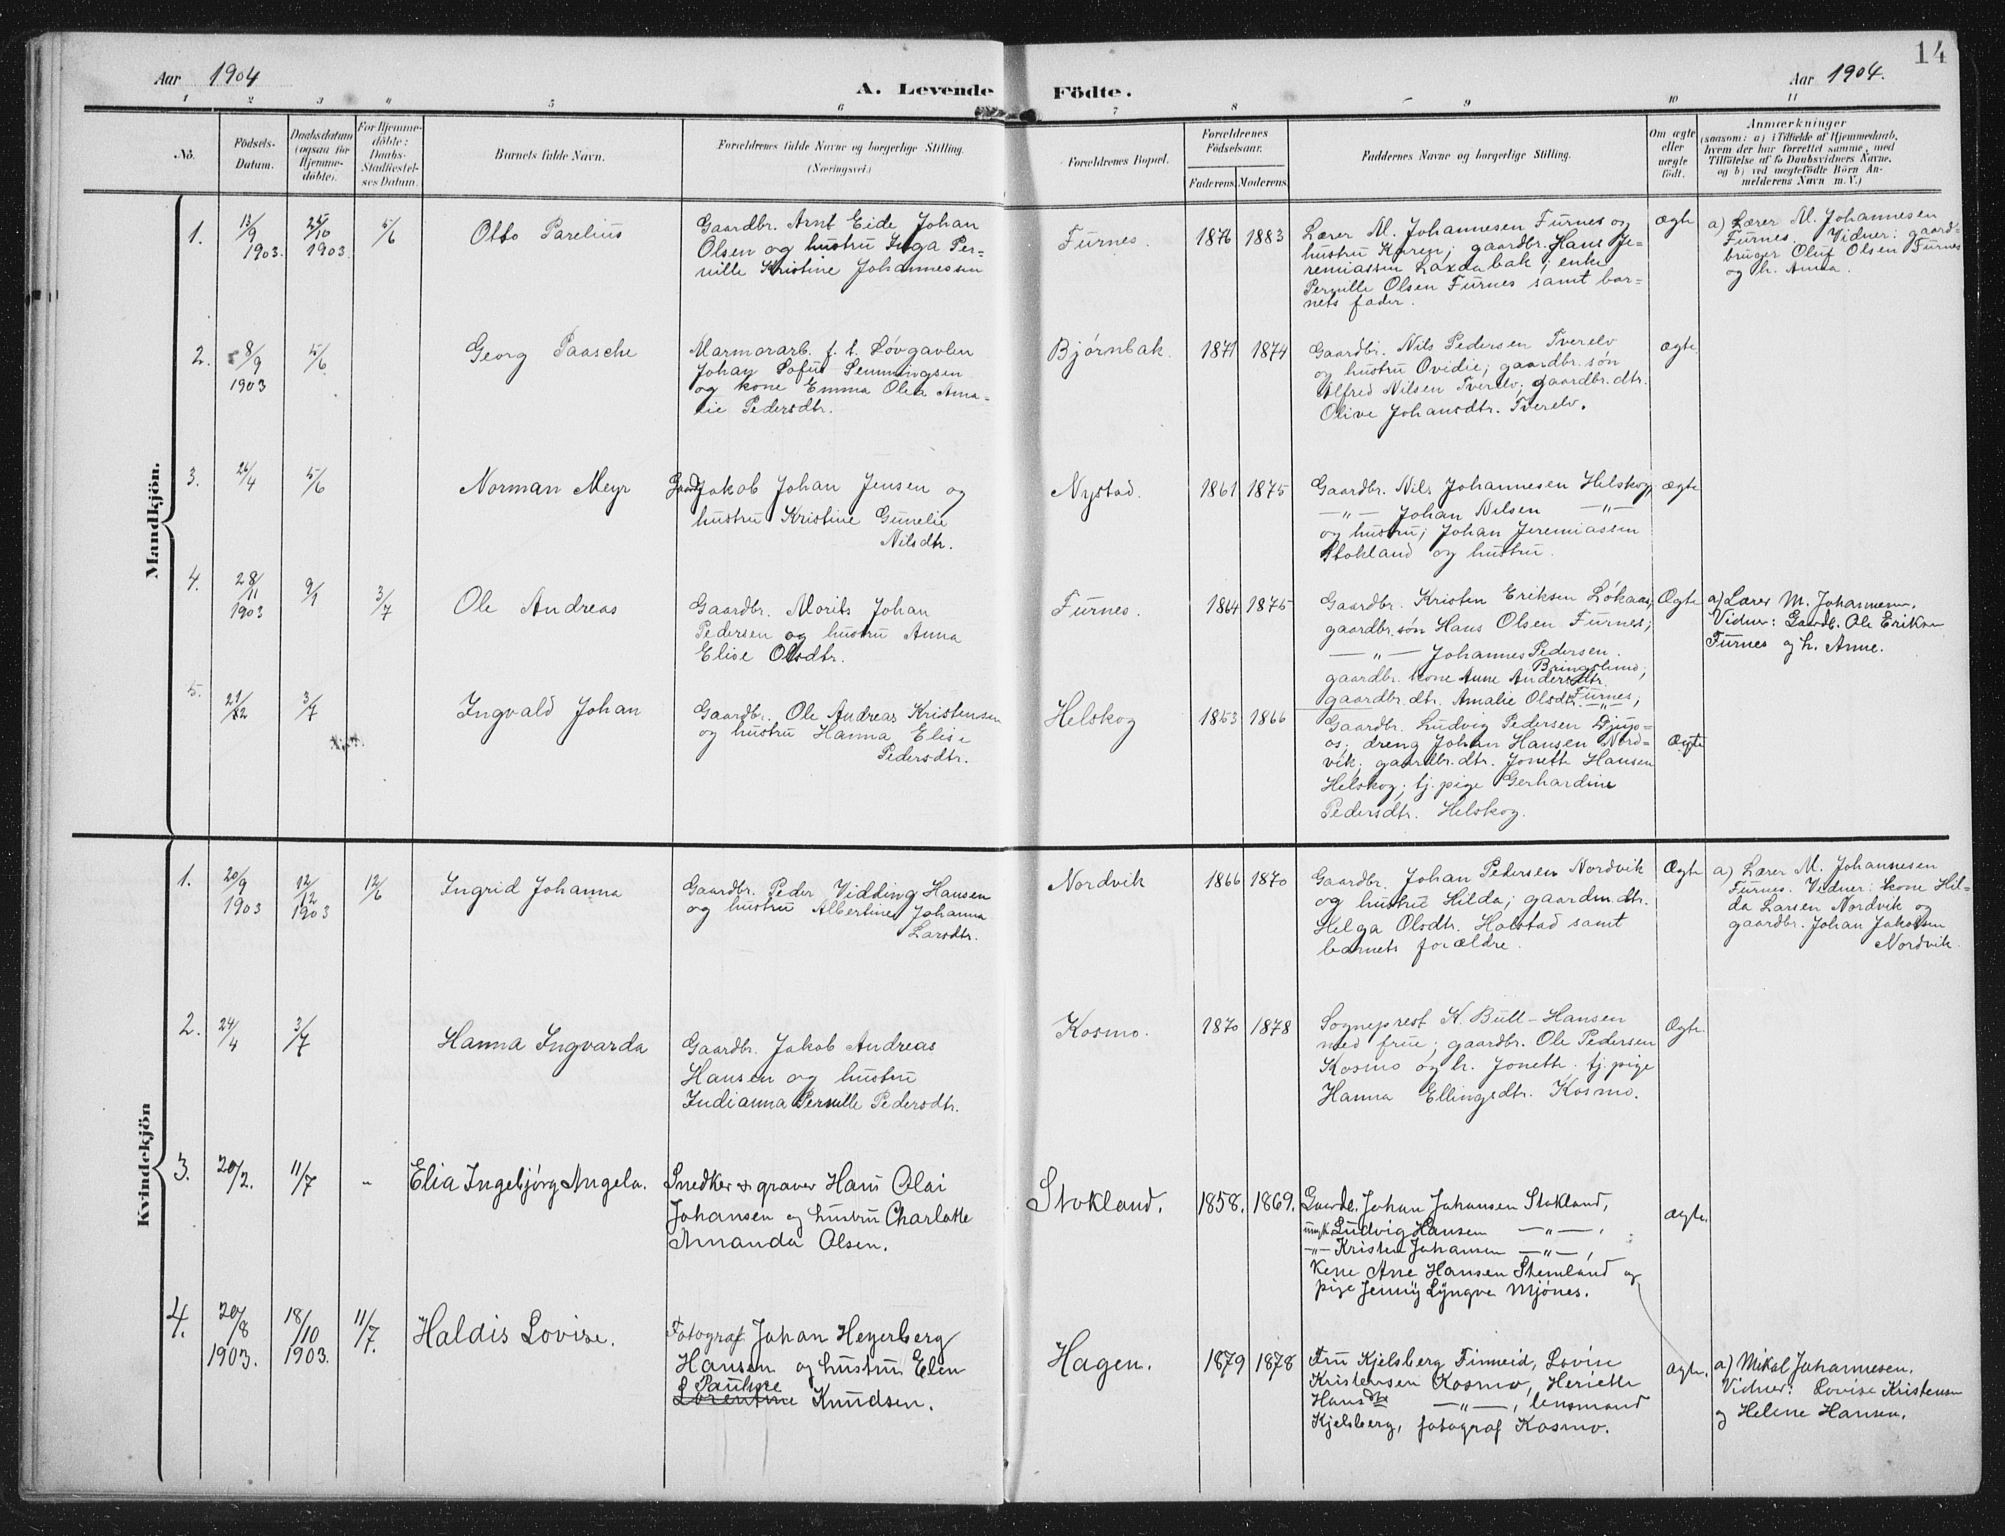 14
Aar 1904
A. Levende Födte.
Aar 1904.
1 2 3 4 5 6 7 8 9 10 11
No.
Födsels-
Datum.
Daabsdatum
(ogsaa for
Hjemme-
döbte).
For Hjemme-
döbte:
Daabs-
Stadfæstel-
ses Datum.
Barnets fulde Navn.
Forældrenes fulde Navne og borgerlige Stilling.
(Næringsvei.)
Forældrenes Bopæl.
Forældrenes
Födselsaar.
Faderens. Moderens.
Faddernes Navne og borgerlige Stilling.
Om ægte
eller
uægte
født.
Anmærkninger
(saasom: a) i Tilfælde af Hjemmedaab,
hvem der har forrettet samme, med
Tilföielse af to Daabsvidners Navne,
og b) ved uægtefödte Börn An-
melderens Navn m. V.)
Mandkjön.
1.
13/9
1903.
25/10
1903.
5/6
Otto Parelius
Gaardbr. Arnt Eide Johan
Olsen og hustru Inga Per-
nille Kristine Johannessen
Furnes.
1876 1883
Lærer M. Johannesen Furnes og
hustru Karen; gaardbr. Hans Je-
remiassen Laxdabak; enke
Pernille Olsen Furnes samt bar-
nets fader.
ægte
a) Lærer M. Johannesen
Furnes. Vidner: gaard-
bruger Oluf Olsen Furnes
og h. Anna.
2.
8/9
1903
5/6
Georg Paasche
Marmorarb. f. t. Løvgavlen
Johan Sofus Pemmingsen
og kone Emma Olea Ama-
lie Pedersdtr.
Bjørnbak.
1871 1874
Gaardbr. Nils Pedersen Tverelv
og hustru Ovidie; gaardbr. søn
Alfred Nilsen Tverelv; gaardbr. dtr.
Olive Johansdtr. Tverelv.
ægte
3.
26/4
5/6
Norman Meyr
Gaardb. Jakob Johan Jensen og
hustru Kristine Gunelie
Nilsdtr.
Nystad.
1861 1875
Gaardbr. Nils Johannesen Helskog,
—„— Johan Nilsen —„—
og hustru; Johan Jeremiassen
Stokland og hustru.
ægte
4.
28/11
1903
9/1
3/7
Ole Andreas
Gaardbr. Morits Johan
Pedersen og hustru Anna
Elise Olsdtr.
Furnes.
1864 1875
Gaardbr. Kristen Eriksen Løkaas,
gaardbr. søn Hans Olsen Furnes;
—„— Johannes Pedersen
Bringslimo;
gaardbr. kone Anne Andersdtr.
Furnes;
gaardbr. dtr. Amalie Olsdtr. —„—
Ægte
a) Lærer M. Johannesen.
Vidner: Gaardb. Ole Eriksen
Furnes og h. Anne.
5.
29/12
3/7
Ingvald Johan
Gaardbr. Ole Andreas Kristensen
og hustru Hanna Elise
Pedersdtr.
Helskog
1853 1866
Gaardbr. Ludvig Pedersen Djups-
os; dreng Johan Hansen Nord-
vik; gaardbr. dtr. Jonette Hansen
Helskog; tj. pige Gerhardine
Pedersdtr. Helskog.
Ægte
Kvindekjön
1.
20/9
1903
12/12
1903
12/6
Ingrid Johanna
Gaardbr. Peder Vidding Hansen
og hustru Albertine Johanna
Larsdtr.
Nordvik
1866 1870
Gaardbr. Johan Pedersen Nordvik
og hustru Hilda; gaardm. dtr.
Helga Olsdtr. Halstad samt
barnets forældre.
Ægte
a) Lærer M. Johannesen
Furnes. Vidner: kone Hil-
da Larsen Nordvik og
gaardbr. Johan Jakobsen
Nordvik.
2.
24/4
3/7
Hanna Ingvarda
Gaardbr. Jakob Andreas
Hansen og hustru
Indianna Pernille Pedersdtr.
Kosmo.
1870 1878
Sogneprest K. Bull-Hansen
med frue; gaardbr. Ole Pedersen
Kosmo og h. Jonette; tj. pige
Hanna Ellingsdtr. Kosmo.
Ægte
3.
20/2.
11/7
„
Elia Ingebjörg Angela.
Snedker & graver Hans Olai
Johansen og hustru Charlotte
Amanda Olsen.
Stokland.
1858. 1869.
Gaardb. Johan Johansen Stokland,
ungk. Ludvig Hansen —„—,
—„— Kristen Johansen —„—,
Kone Ane Hansen Stemland og
pige Jenny Lyngve Mjönes.
ægte.
4.
20/8
1903.
18/10
1903.
11/7.
Haldis Lovise.
Fotograf Johan Heyerberg
Hansen og hustru Elen
Pauline
Lorentine Knudsen.
Hagen.
1879 1878
Fru Kjelsberg Finneid, Lovise
Kristensen Kosmo, Heriette
Hansdtr —„—, lensmand
Kjelsberg, fotograf Kosmo.
ægte.
a) Mikal Johannesen.
Vidner: Lovise Kristensen
og Helene Hansen.